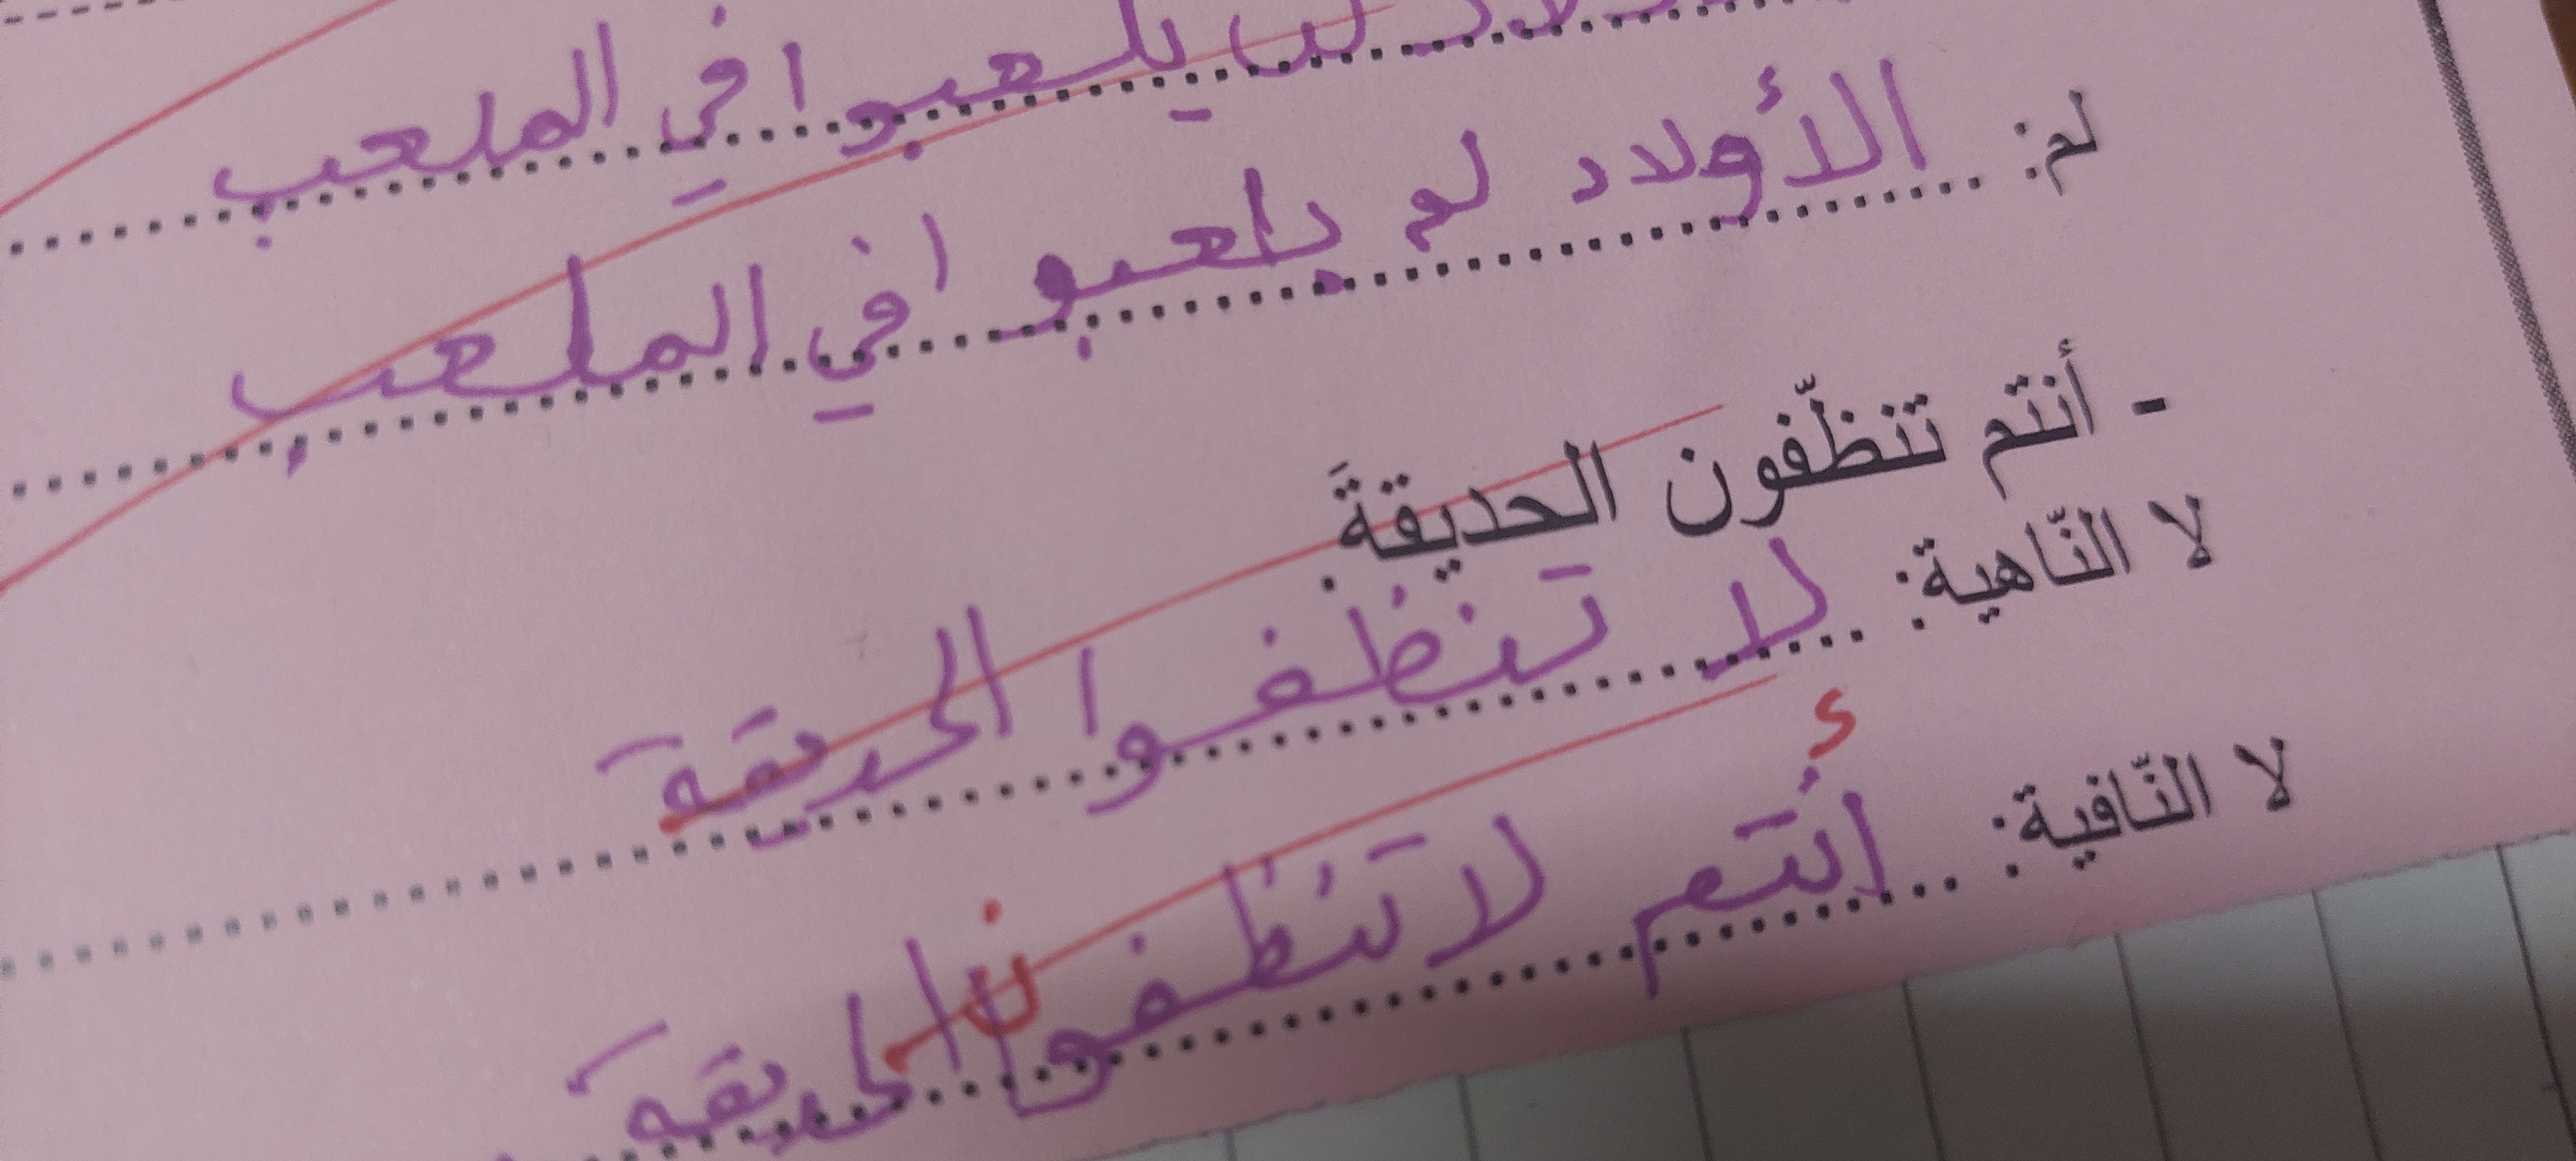 لن يلعبوا في الملعب
لم: الأولاد لم يلعبوا في الملعب
- أنتم تنظّفون الحديقةَ.
لا النّاهية: لا تنظفوا الحديقة
لا النّافية: أنتم لا تنظفوا الحديقة
ن